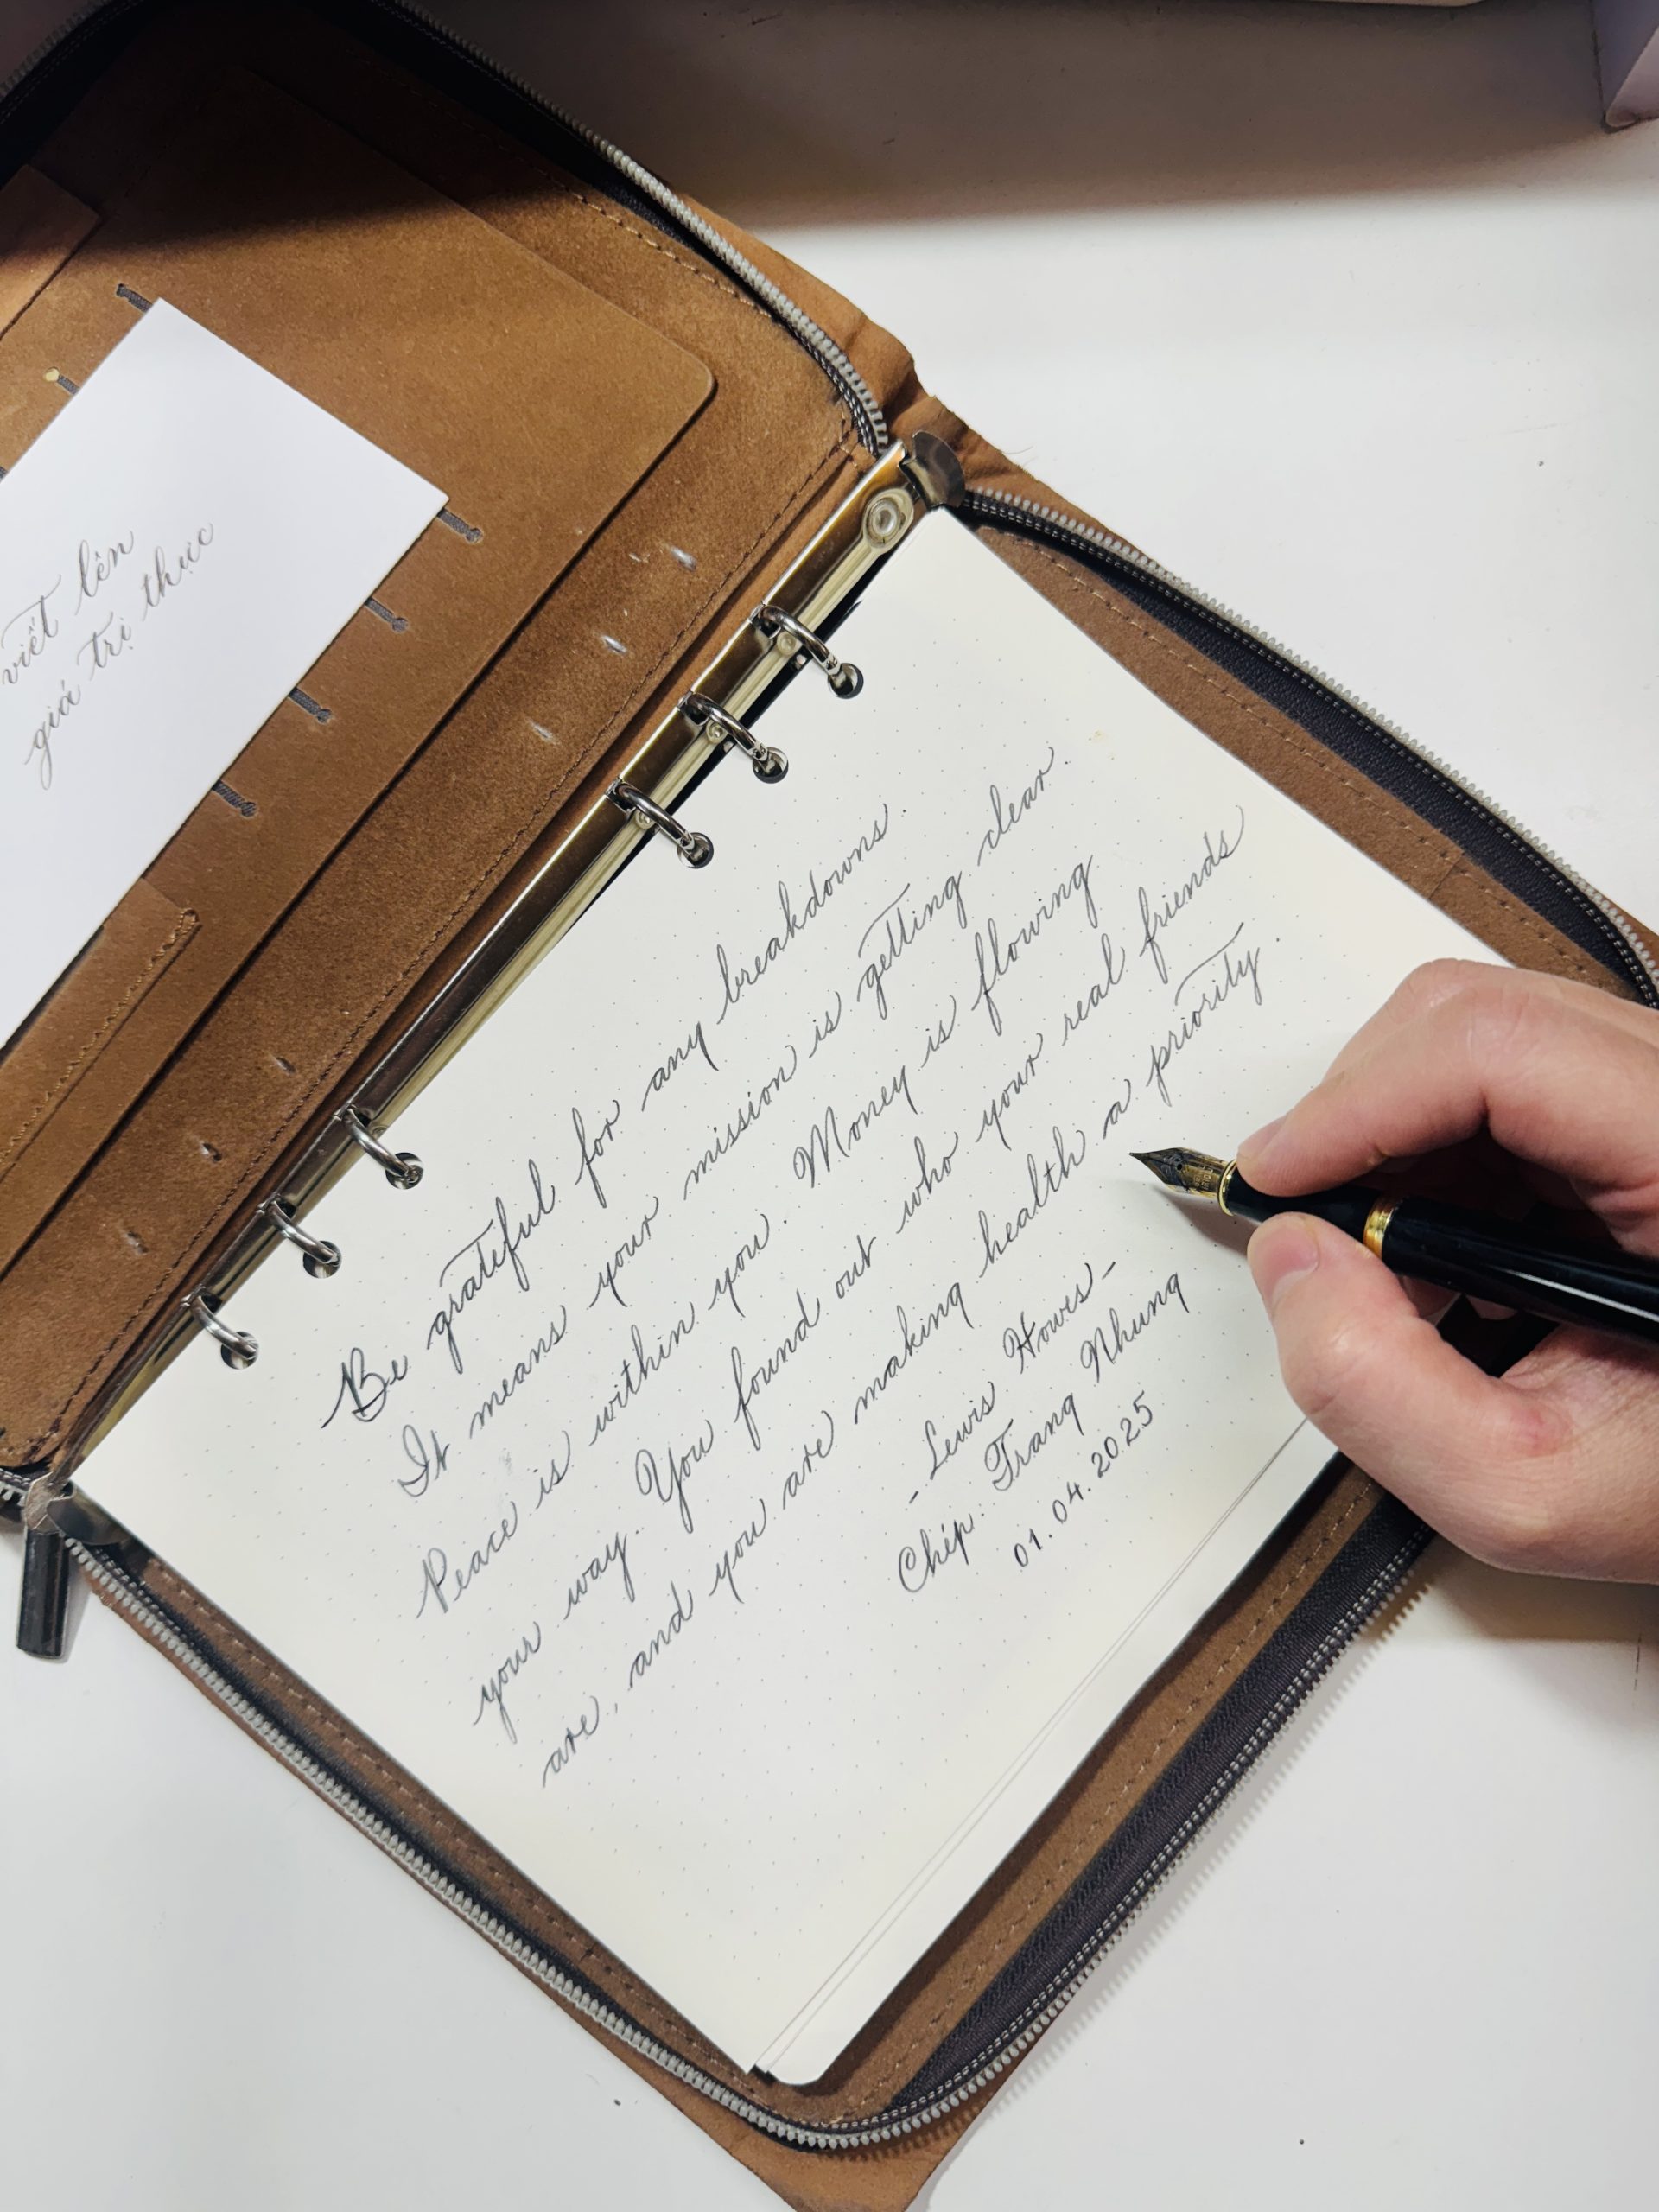 viết lên
giá trị thực
Be grateful for any breakdowns.
It means your mission is getting clear.
Peace is within you. Money is flowing
your way. You found out who your real friends
are, and you are making health a priority.
- Lewis Howes -
Chép: Trang Nhung
01.04.2025